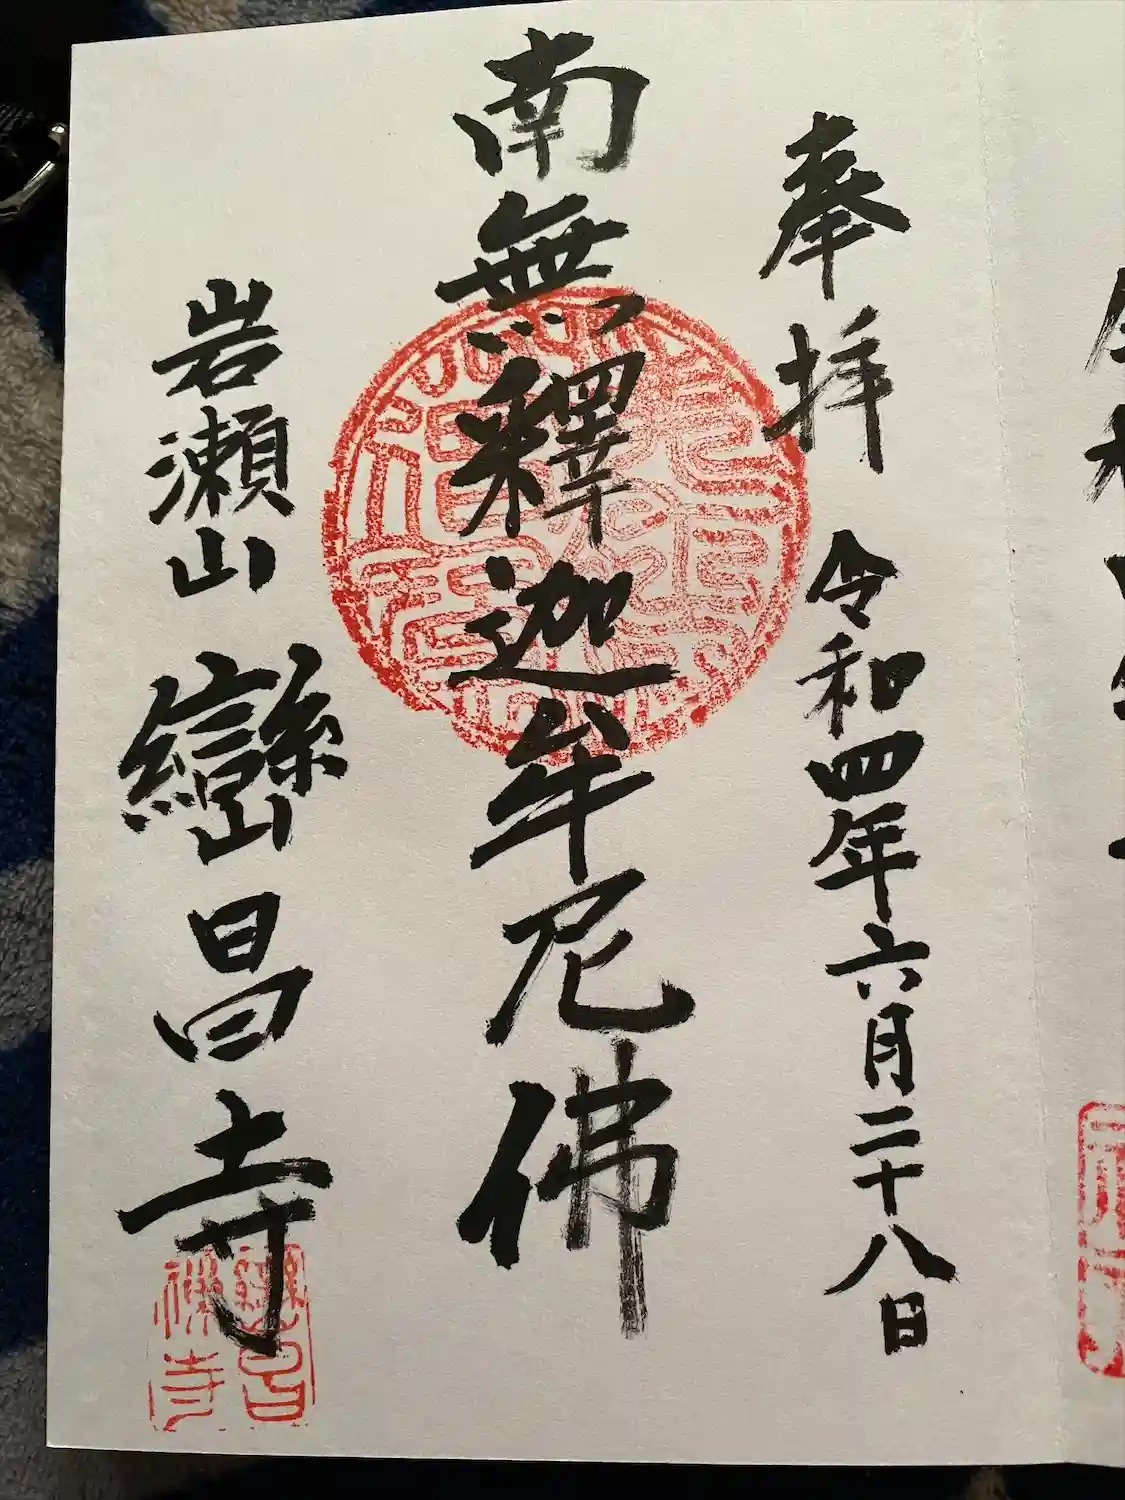 奉拝
令和四年六月二十八日
南無釋迦牟尼佛
岩瀬山
巒昌寺